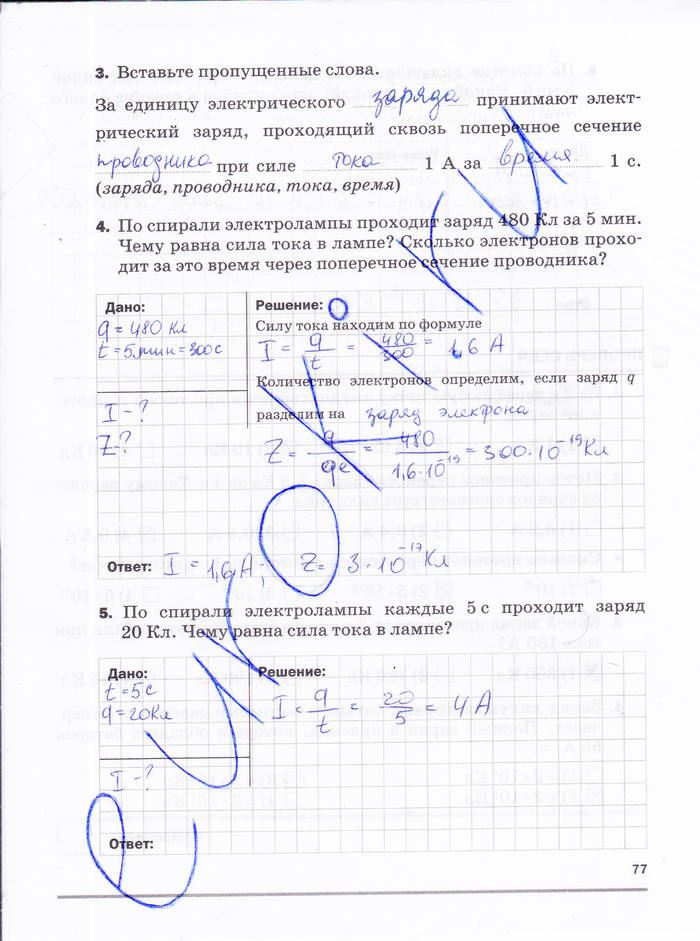 3. Вставьте пропущенные слова.
За единицу электрического заряда принимают элект-
рический заряд, проходящий сквозь поперечное сечение
проводника при силе тока 1 А за время 1 с.
(заряда, проводника, тока, время)
4. По спирали электролампы проходит заряд 480 Кл за 5 мин.
Чему равна сила тока в лампе? Сколько электронов прохо-
дит за это время через поперечное сечение проводника?
Дано:
q = 480 Кл
t = 5 мин = 300 с
I - ?
Z - ?
Решение:
Силу тока находим по формуле
I = q/t = 480/300 = 1,6 А
Количество электронов определим, если заряд q
разделим на заряд электрона
Z = q/qe = 480/1,6·10⁻¹⁹ = 300·10⁻¹⁹ Кл
Ответ: I = 1,6 А; Z = 3·10⁻¹⁷ Кл
5. По спирали электролампы каждые 5 с проходит заряд
20 Кл. Чему равна сила тока в лампе?
Дано:
t = 5 с
q = 20 Кл
I - ?
Решение:
I = q/t = 20/5 = 4 А
Ответ:
77